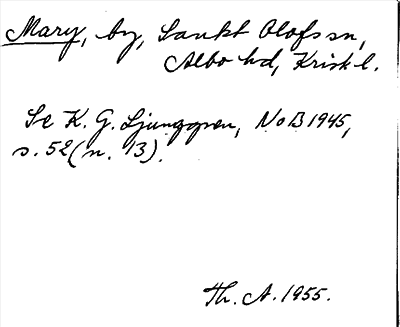 Mary, by, Sankt Olofs sn,
Albo hd, Krist l.
Se K. G. Ljunggren, NoB 1945,
s. 52 (n. 13).
Th. A. 1955.